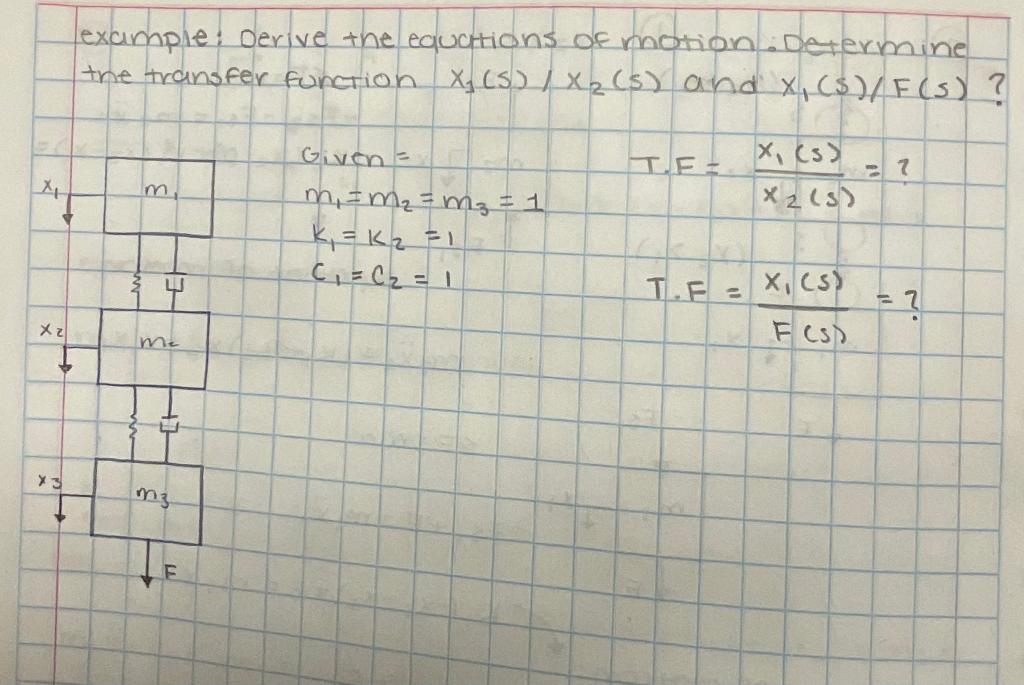 example: Derive the equations of motion. Determine
the transfer function X₁(s) / X₂(s) and X₁(s)/F(s) ?
Given =
m₁ = m₂ = m₃ = 1
K₁ = K₂ = 1
C₁ = C₂ = 1
T.F = X₁(s) / X₂(s) = ?
T.F = X₁(s) / F(s) = ?
x₁
m₁
x₂
m₂
x₃
m₃
F